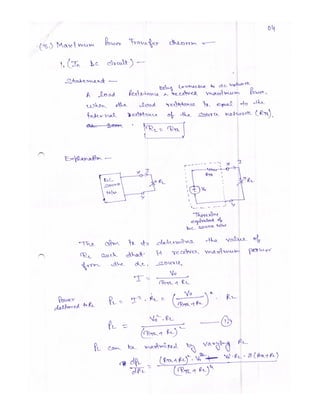 04
(5.) Maximum Power Transfer theorem —
1. (In DC circuit) —
Statement —
being connected to dc network
A load Resistance receives maximum Power,
when the load resistance is equal to the
internal resistance of the source network (Rth).
RL = Rth
Explanation —
D.C. source n/w
I
RL
Rth
V0
I
RL
Thevenin's
equivalent of
D.C. source n/w
The aim is to determine the value of
RL such that it receive maximum power
from the d.c. source,
I = V0 / (Rth + RL)
Power
delivered to RL
PL = I². RL = (V0 / (Rth + RL))². RL
PL = V0². RL / (Rth + RL)²
PL can be maximized by varying RL
dPL/dRL = ((Rth + RL)². V0² – V0². RL. 2(Rth + RL)) / (Rth + RL)⁴